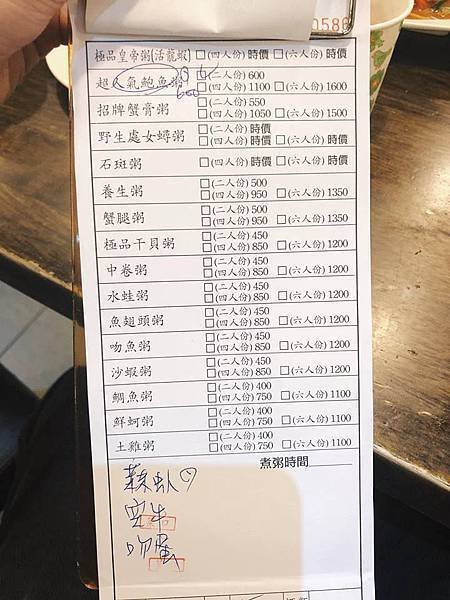 0586
極品皇帝粥(活龍蝦) □(四人份)時價 □(六人份)時價
超人氣鮑魚粥 □(二人份)600
600 □(四人份)1100 □(六人份)1600
招牌蟹膏粥 □(二人份)550
□(四人份)1050 □(六人份)1500
野生處女蟳粥 □(二人份)時價
□(四人份)時價 □(六人份)時價
石斑粥 □(四人份)時價 □(六人份)時價
養生粥 □(二人份)500
□(四人份)950 □(六人份)1350
蟹腿粥 □(二人份)500
□(四人份)950 □(六人份)1350
極品干貝粥 □(二人份)450
□(四人份)850 □(六人份)1200
中卷粥 □(二人份)450
□(四人份)850 □(六人份)1200
水蛙粥 □(二人份)450
□(四人份)850 □(六人份)1200
魚翅頭粥 □(二人份)450
□(四人份)850 □(六人份)1200
吻魚粥 □(二人份)450
□(四人份)850 □(六人份)1200
沙蝦粥 □(二人份)450
□(四人份)850 □(六人份)1200
鯛魚粥 □(二人份)400
□(四人份)750 □(六人份)1100
鮮蚵粥 □(二人份)400
□(四人份)750 □(六人份)1100
土雞粥 □(二人份)400
□(四人份)750 □(六人份)1100
煮粥時間
吻蛋